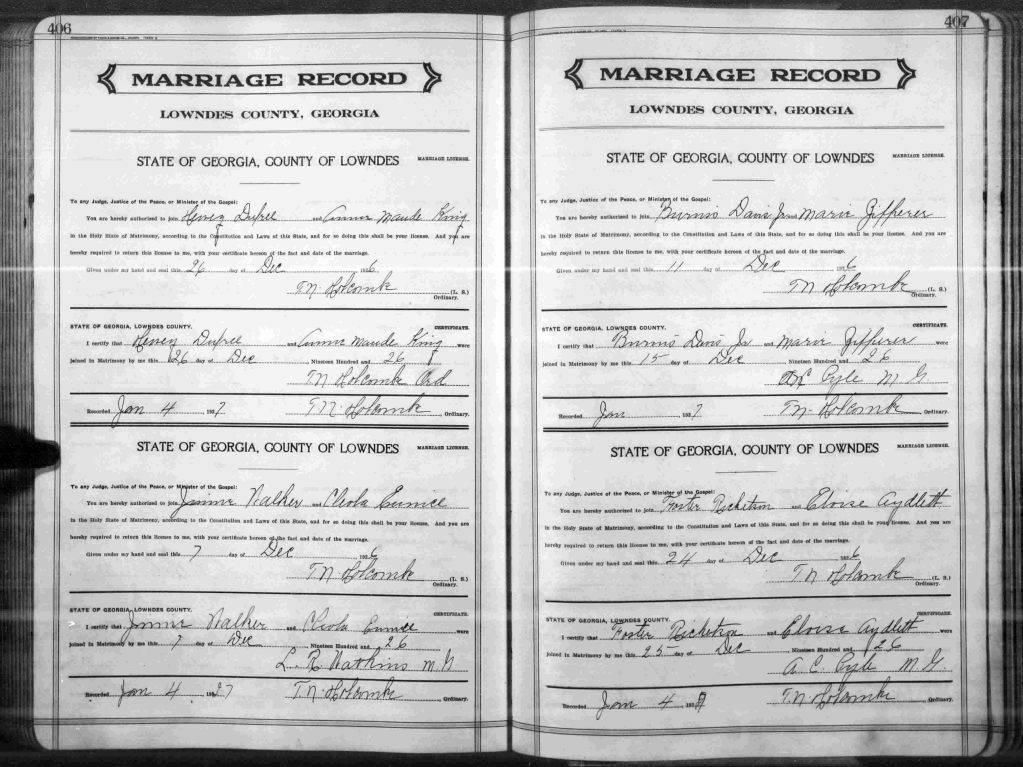 406
MARRIAGE RECORD
LOWNDES COUNTY, GEORGIA
STATE OF GEORGIA, COUNTY OF LOWNDES MARRIAGE LICENSE.
To any Judge, Justice of the Peace, or Minister of the Gospel:
You are hereby authorized to join Henry Dupree and Annie Maude King
in the Holy State of Matrimony, according to the Constitution and Laws of this State, and for so doing this shall be your license. And you are
hereby required to return this license to me, with your certificate hereon of the fact and date of the marriage.
Given under my hand and seal this 26 day of Dec 1926
T.N. Holcomb (L. S.)
Ordinary.
STATE OF GEORGIA, LOWNDES COUNTY. CERTIFICATE.
I certify that Henry Dupree and Annie Maude King were
joined in Matrimony by me this 26 day of Dec Nineteen Hundred and 26
T.N. Holcomb Ord
Recorded Jan 4 1927 T.N. Holcomb Ordinary.
STATE OF GEORGIA, COUNTY OF LOWNDES MARRIAGE LICENSE.
To any Judge, Justice of the Peace, or Minister of the Gospel:
You are hereby authorized to join Jimmie Walker and Cleola Eunice
in the Holy State of Matrimony, according to the Constitution and Laws of this State, and for so doing this shall be your license. And you are
hereby required to return this license to me, with your certificate hereon of the fact and date of the marriage.
Given under my hand and seal this 7 day of Dec 1926
T.N. Holcomb (L. S.)
Ordinary.
STATE OF GEORGIA, LOWNDES COUNTY. CERTIFICATE.
I certify that Jimmie Walker and Cleola Eunice were
joined in Matrimony by me this 7 day of Dec Nineteen Hundred and 26
L. R. Watkins M G
Recorded Jan 4 1927 T.N. Holcomb Ordinary.
407
MARRIAGE RECORD
LOWNDES COUNTY, GEORGIA
STATE OF GEORGIA, COUNTY OF LOWNDES MARRIAGE LICENSE.
To any Judge, Justice of the Peace, or Minister of the Gospel:
You are hereby authorized to join Davis Jr and Marie
in the Holy State of Matrimony, according to the Constitution and Laws of this State, and for so doing this shall be your license. And you are
hereby required to return this license to me, with your certificate hereon of the fact and date of the marriage.
Given under my hand and seal this 11 day of Dec 1926
T.N. Holcomb (L. S.)
Ordinary.
STATE OF GEORGIA, LOWNDES COUNTY. CERTIFICATE.
I certify that Davis Jr and Marie were
joined in Matrimony by me this 15 day of Dec Nineteen Hundred and 26
AC Pyle M G
Recorded Jan 1927 T.N. Holcomb Ordinary.
STATE OF GEORGIA, COUNTY OF LOWNDES MARRIAGE LICENSE.
To any Judge, Justice of the Peace, or Minister of the Gospel:
You are hereby authorized to join Foster Ricketson and Eloise Aydlett
in the Holy State of Matrimony, according to the Constitution and Laws of this State, and for so doing this shall be your license. And you are
hereby required to return this license to me, with your certificate hereon of the fact and date of the marriage.
Given under my hand and seal this 24 day of Dec 1926
T.N. Holcomb (L. S.)
Ordinary.
STATE OF GEORGIA, LOWNDES COUNTY. CERTIFICATE.
I certify that Foster Ricketson and Eloise Aydlett were
joined in Matrimony by me this 25 day of Dec Nineteen Hundred and 26
A. C. Pyle M G
Recorded Jan 4 1927 T.N. Holcomb Ordinary.